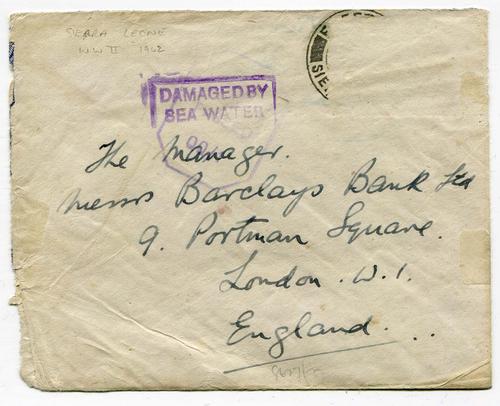 SIERRA LEONE
WW II 1942
SIE
DAMAGED BY
SEA WATER
The Manager.
Messrs Barclays Bank Ltd
9. Portman Square.
London. W.1.
England...